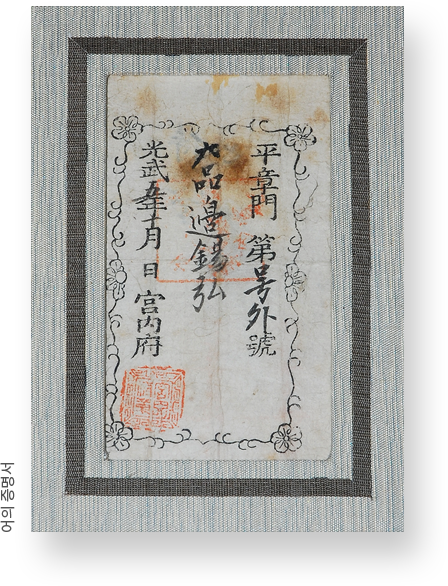 平章門 第号外號
六品 邊錫弘
光武五年十月 日 宮內府
어의 증명서